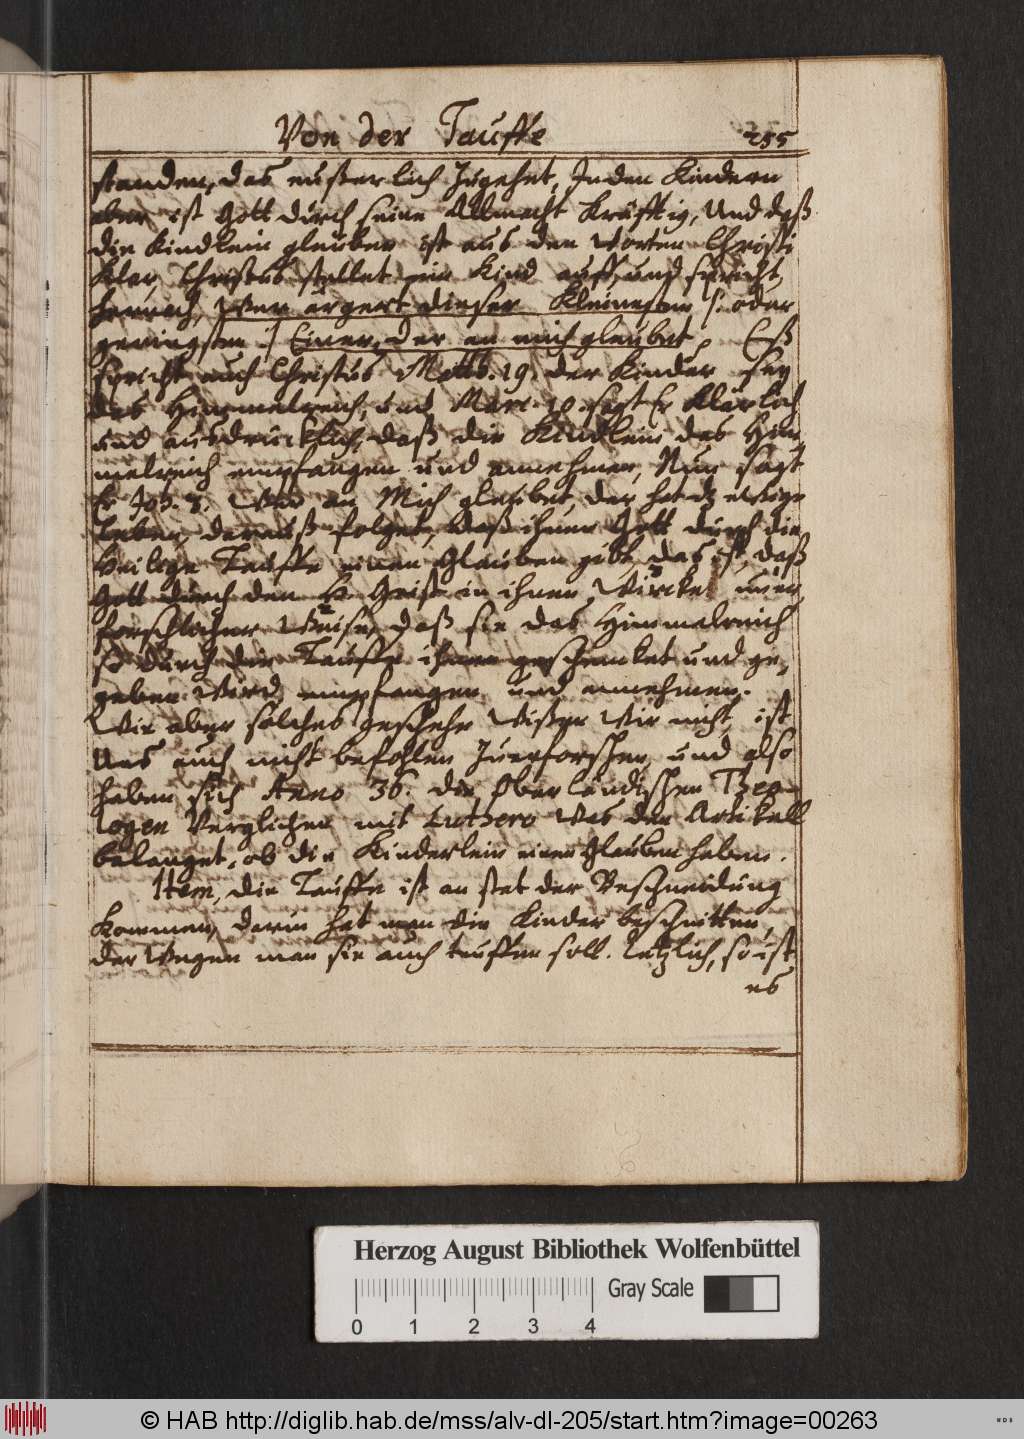 Von der Tauffe 255
standen, das eußerlich Zugehet, In den Kindern
aber ist Gott durch seine Allmacht Kräfftig, Und daß
die Kindlein glauben ist aus den Worten Christi
klar, Christus stellet ein Kind auff und spricht
hernach, Wer ergert dieser Kleinesten /: oder
geringsten :/ Einen, der an mich gleubet, Eß
spricht auch Christus Matth. 19. der Kinder sey
das Himmelreich, und Marc. 10. sagt Er klärlich
und ausdrücklich, daß die Kindlein das Him
melreich empfangen und annehmen, Nun sagt
Er Joh. 3. Wer an Mich gleubet, der hat dz ewige
leben, darauß folget, daß ihnen Gott durch die
Heilige Tauffe einen Glauben gibt, das ist, daß
Gott durch den H. Geist in ihnen Wircket uner
forschlicher Weise, daß sie das Himmelreich
so durch die Tauffe ihnen geschencket und ge,
geben wird, empfangen und annehmen.
Wie aber solches geschehe Wißen Wir nicht, ist
Uns auch nicht befohlen Zuerforschen, und also
haben sich Anno 36. die Oberländischen Theo
logen Verglichen mit Luthero Was der Artikell
belanget, ob die Kinderlein einen Glauben haben.
Item, die Tauffe ist an stat der Beschneidung
Kommen, darin hat man die Kinder beschnitten,
der Wegen man sie auch teuffen soll. Letzlich, so ist
es
Herzog August Bibliothek Wolfenbüttel
Gray Scale
0 1 2 3 4
© HAB http://diglib.hab.de/mss/alv-dl-205/start.htm?image=00263